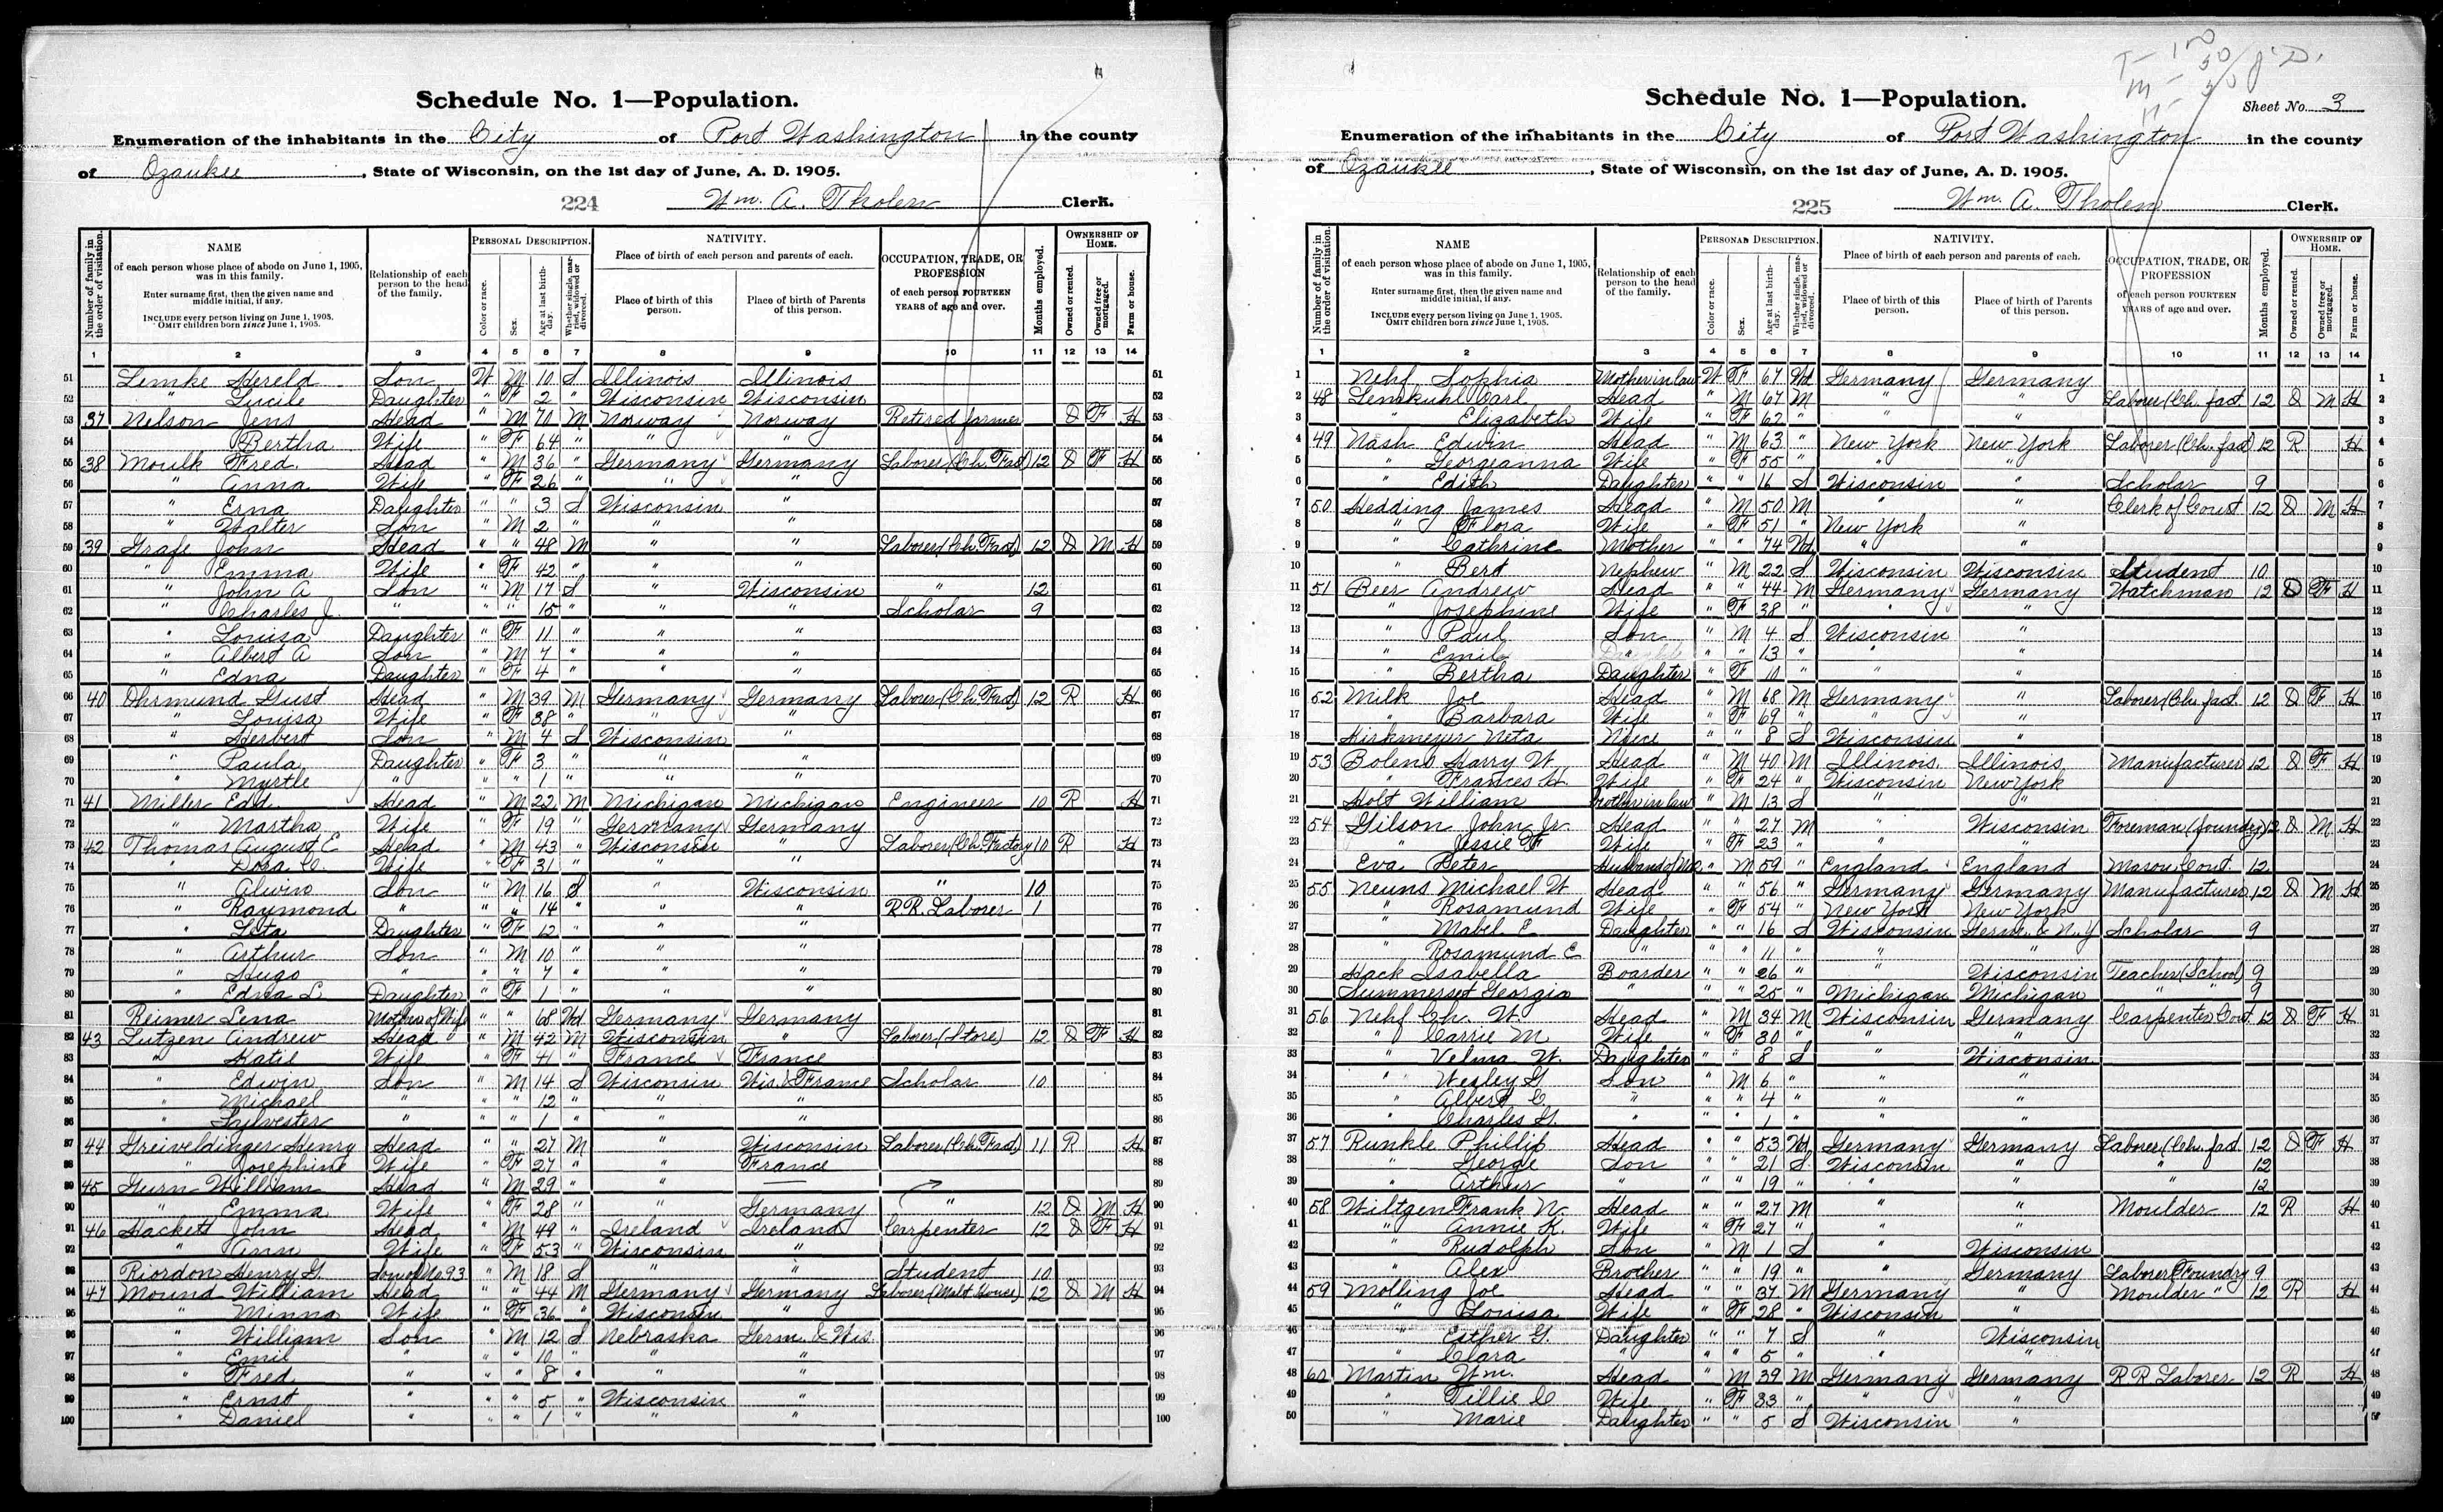 Schedule No. 1—Population.
Enumeration of the inhabitants in the City of Port Washington in the county
of Ozaukee, State of Wisconsin, on the 1st day of June, A. D. 1905.
224 Wm. A. Tholen Clerk.
Number of family in the order of visitation.
NAME of each person whose place of abode on June 1, 1905, was in this family.
Enter surname first, then the given name and middle initial, if any.
INCLUDE every person living on June 1, 1905.
OMIT children born since June 1, 1905.
Relationship of each person to the head of the family.
PERSONAL DESCRIPTION.
Color or race.
Sex.
Age at last birthday.
Whether single, married, widowed or divorced.
NATIVITY.
Place of birth of each person and parents of each.
Place of birth of this person.
Place of birth of Parents of this person.
OCCUPATION, TRADE, OR PROFESSION of each person FOURTEEN YEARS of age and over.
Months employed.
OWNERSHIP OF HOME.
Owned or rented.
Owned free or mortgaged.
Farm or house.
1 2 3 4 5 6 7 8 9 10 11 12 13 14
51 Lemke Hereld Son W M 10 S Illinois Illinois 51
52 " Lucile Daughter " F 2 " Wisconsin Wisconsin 52
53 37 Nelson Jens Head " M 70 M Norway Norway Retired farmer O F H 53
54 " Bertha Wife " F 64 " " " 54
55 38 Moulk Fred. Head " M 36 " Germany Germany Laborer (Ch. Fact) 12 O F H 55
56 " Anna Wife " F 26 " " " 56
57 " Erna Daughter " " 3 S Wisconsin " 57
58 " Walter Son " M 2 " " " 58
59 39 Grafe John Head " " 48 M " " Laborer (Ch. Fact) 12 O M H 59
60 " Emma Wife " F 42 " " " 60
61 " John A Son " M 17 S " Wisconsin " 12 61
62 " Charles J. " " " 15 " " " Scholar 9 62
63 " Louisa Daughter " F 11 " " " 63
64 " Albert A Son " M 7 " " " 64
65 " Edna Daughter " F 4 " " " 65
66 40 Ohrmund Gust Head " M 39 M Germany Germany Laborer (Ch. Fact) 12 R H 66
67 " Louisa Wife " F 38 " " " 67
68 " Herbert Son " M 4 S Wisconsin " 68
69 " Paula Daughter " F 3 " " " 69
70 " Myrtle " " " 1 " " " 70
71 41 Miller Edd. Head " M 22 M Michigan Michigan Engineer 10 R H 71
72 " Martha Wife " F 19 " Germany Germany 72
73 42 Thomas August E Head " M 43 " Wisconsin " Laborer (Ch. Factory 10 R H 73
74 " Dora C. Wife " F 31 " " " 74
75 " Alwin Son " M 16 S " Wisconsin " 10 75
76 " Raymond " " " 14 " " " R.R. Laborer 1 76
77 " Leta Daughter " F 12 " " " 77
78 " Arthur Son " M 10 " " " 78
79 " Hugo " " " 7 " " " 79
80 " Edna L Daughter " F 1 " " " 80
81 Reimer Lena Mother of Wife " " 68 Wd Germany Germany 81
82 43 Lutzen Andrew Head " M 42 M Wisconsin " Laborer (Store) 12 O F H 82
83 " Katie Wife " F 41 " France France 83
84 " Edwin Son " M 14 S Wisconsin Wis. & France Scholar 10 84
85 " Michael " " " 12 " " " 85
86 " Sylvester " " " 1 " " " 86
87 44 Greiveldinger Henry Head " " 27 M " Wisconsin Laborer (Ch. Fact) 11 R H 87
88 " Josephine Wife " F 27 " " France 88
89 45 Gurn William Head " M 29 " " — 89
90 " Emma Wife " F 28 " " Germany " 12 O M H 90
91 46 Hackett John Head " M 49 " Ireland Ireland Carpenter 12 O F H 91
92 " Ann Wife " F 53 " Wisconsin " 92
93 Riordon Henry G. Son of No 93 " M 18 S " " Student 10 93
94 47 Mound William Head " " 44 M Germany Germany Laborer (Malt House) 12 O M H 94
95 " Minna Wife " F 36 " Wisconsin " 95
96 " William Son " M 12 S Nebraska Germ. & Wis. 96
97 " Emil " " " 10 " " " 97
98 " Fred " " " 8 " " " 98
99 " Ernst " " " 5 " Wisconsin " 99
100 " Daniel " " " 1 " " " 100
Schedule No. 1—Population.
Sheet No. 3
Enumeration of the inhabitants in the City of Port Washington in the county
of Ozaukee, State of Wisconsin, on the 1st day of June, A. D. 1905.
225 Wm. A. Tholen Clerk.
Number of family in the order of visitation.
NAME of each person whose place of abode on June 1, 1905, was in this family.
Enter surname first, then the given name and middle initial, if any.
INCLUDE every person living on June 1, 1905.
OMIT children born since June 1, 1905.
Relationship of each person to the head of the family.
PERSONAL DESCRIPTION.
Color or race.
Sex.
Age at last birthday.
Whether single, married, widowed or divorced.
NATIVITY.
Place of birth of each person and parents of each.
Place of birth of this person.
Place of birth of Parents of this person.
OCCUPATION, TRADE, OR PROFESSION of each person FOURTEEN YEARS of age and over.
Months employed.
OWNERSHIP OF HOME.
Owned or rented.
Owned free or mortgaged.
Farm or house.
1 2 3 4 5 6 7 8 9 10 11 12 13 14
1 Nehf Sophia Mother in law W F 67 Wd Germany Germany 1
2 48 Lemkuhl Carl Head " M 67 M " " Laborer (Ch. fact 12 O M H 2
3 " Elizabeth Wife " F 62 " " " 3
4 49 Nash Edwin Head " M 63 " New York New York Laborer (Ch. fact) 12 R H 4
5 " Georgeanna Wife " F 55 " " " 5
6 " Edith Daughter " " 16 S Wisconsin " Scholar 9 6
7 50 Hedding James Head " M 50 M " " Clerk of Court 12 O M H 7
8 " Flora Wife " F 51 " New York " 8
9 " Cathrine Mother " " 74 Wd " " 9
10 " Bert Nephew " M 22 S Wisconsin Wisconsin Student 10 10
11 51 Beer Andrew Head " " 44 M Germany Germany Watchman 12 O F H 11
12 " Josephine Wife " F 38 " " " 12
13 " Paul Son " M 4 S Wisconsin " 13
14 " Emil " " " 13 " " " 14
15 " Bertha Daughter " F 10 " " " 15
16 52 Milk Joe Head " M 68 M Germany " Laborer (Ch. fact. 12 O F H 16
17 " Barbara Wife " F 69 " " " 17
18 Hirkmeyer Neta Niece " " 8 S Wisconsin " 18
19 53 Bolens Harry W. Head " M 40 M Illinois Illinois Manufacturer 12 O F H 19
20 " Frances H Wife " F 24 " Wisconsin New York 20
21 Holt William Brother in law " M 13 S " " 21
22 54 Gilson John Jr. Head " " 27 M " Wisconsin Foreman (foundry) 12 O M H 22
23 " Jessie F Wife " F 23 " " " 23
24 Eva Peter " M 59 " England England Mason Cont. 12 24
25 55 Neuns Michael W Head " " 56 " Germany Germany Manufacturer 12 O M H 25
26 " Rosamund Wife " F 54 " New York New York 26
27 " Mabel E Daughter " " 16 S Wisconsin Germ. & N.Y Scholar 9 27
28 " Rosamund C " " " 11 " " " 28
29 Hack Isabella Boarder " " 26 " " Wisconsin Teacher (School) 9 29
30 Summerset Georgia " " " 25 " Michigan Michigan " " 9 30
31 56 Nehf Ch. W. Head " M 34 M Wisconsin Germany Carpenter Cont. 12 O F H 31
32 " Carrie M Wife " F 30 " " " 32
33 " Velma W. Daughter " " 8 S " Wisconsin 33
34 " Wesley G. Son " M 6 " " " 34
35 " Albert C. " " " 4 " " " 35
36 " Charles G. " " " 1 " " " 36
37 57 Runkle Phillip Head " " 53 Wd Germany Germany Laborer (Ch. fact. 12 O F H 37
38 " George Son " " 21 S Wisconsin " " 12 38
39 " Arthur " " " 19 " " " " 12 39
40 58 Wiltgen Frank N. Head " " 27 M " " Moulder 12 R H 40
41 " Annie K. Wife " F 27 " " " 41
42 " Rudolph Son " M 1 S " Wisconsin 42
43 " Alex Brother " " 19 " " Germany Laborer Foundry 9 43
44 59 Molling Joe Head " " 37 M Germany " Moulder " 12 R H 44
45 " Louisa Wife " F 28 " Wisconsin " 45
46 " Esther G. Daughter " " 7 S " Wisconsin 46
47 " Clara " " " 5 " " " 47
48 60 Martin Wm. Head " M 39 M Germany Germany R R Laborer 12 R H 48
49 " Tillie C Wife " F 33 " " " 49
50 " Marie Daughter " " 5 S Wisconsin " 50